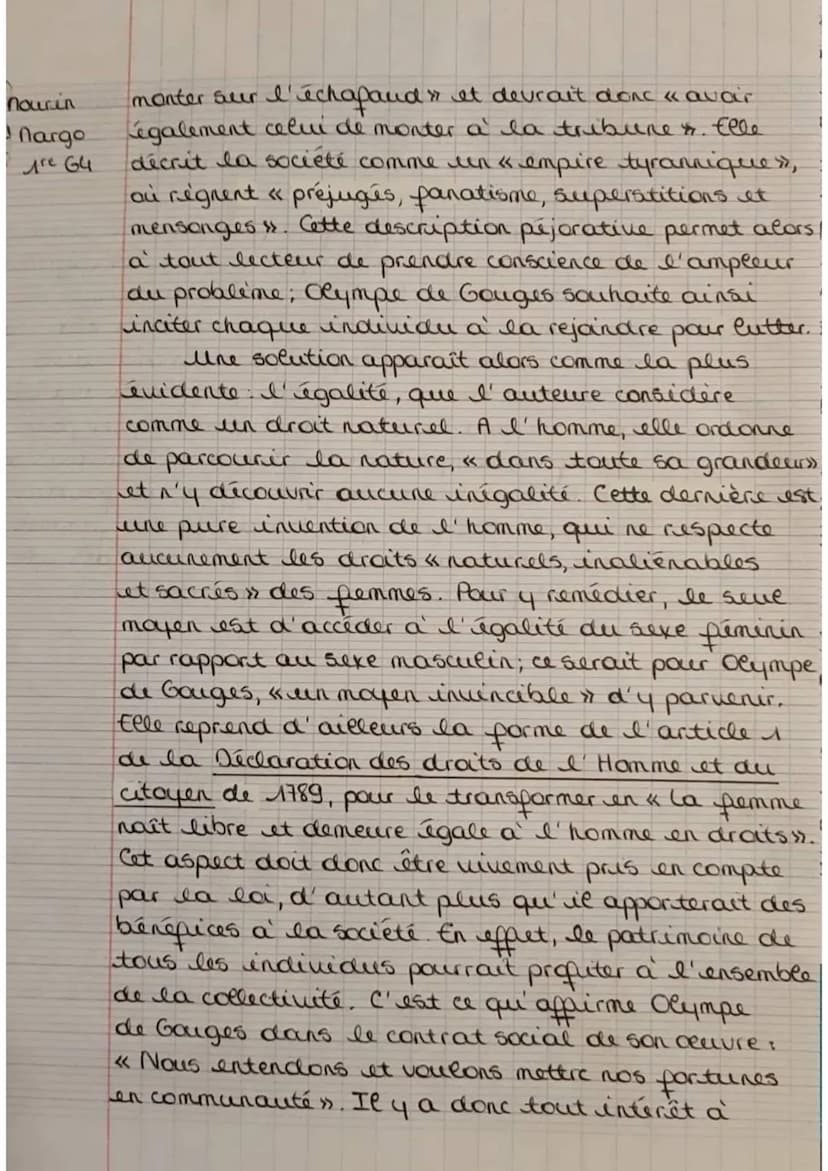 monter sur l'échafaud» et devrait donc «avoir
Margo également celui de monter à la tribune». Elle
1re G4 décrit la société comme un «empire tyrannique»,
où règnent « préjugés, fanatisme, superstitions et
mensonges». Cette description péjorative permet alors
à tout lecteur de prendre conscience de l'ampleur
du problème; Olympe de Gouges souhaite ainsi
inciter chaque individu à la rejoindre pour lutter.
Une solution apparaît alors comme la plus
évidente: l'égalité, que l'auteure considère
comme un droit naturel. A l'homme, elle ordonne
de parcourir la nature, «dans toute sa grandeur»
et n'y découvrir aucune inégalité. Cette dernière est
une pure invention de l'homme, qui ne respecte
aucunement les droits « naturels, inaliénables
et sacrés» des femmes. Pour y remédier, le seul
moyen est d'accéder à l'égalité du sexe féminin
par rapport au sexe masculin; ce serait pour Olympe
de Gouges, «un moyen invincible» d'y parvenir.
Elle reprend d'ailleurs la forme de l'article 1
de la Déclaration des droits de l'Homme et du
citoyen de 1789, pour le transformer en « la femme
naît libre et demeure égale à l'homme en droits».
Cet aspect doit donc être vivement pris en compte
par la loi, d'autant plus qu'il apporterait des
bénéfices à la société. En effet, le patrimoine de
tous les individus pourrait profiter à l'ensemble
de la collectivité. C'est ce qu'affirme Olympe
de Gouges dans le contrat social de son œuvre:
« Nous entendons et voulons mettre nos fortunes
en communauté». Il y a donc tout intérêt à